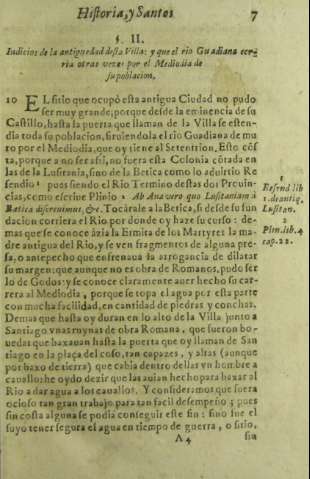 Historia, y Santos 7
§. II.
Indicios de la antiguedad desta Villa: y que el rio Guadiana cor-
ria otras vezes por el Mediodia de
su poblacion.
10 EL sitio que ocupó esta antigua Ciudad no pudo
ser muy grande; porque desde la eminencia de su
Castillo, hasta la puerta que llaman de la Villa se esten-
dia toda su poblacion, siruiendola el rio Guadiana de mu
ro por el Mediodia, que oy tiene al Setentrion. Esto cõs
ta, porque a no ser assi, no fuera esta Colonia cõtada en
las de la Lusitania, sino de la Betica como lo aduirtio Re
sendio 1 pues siendo el Rio Termino destas dos Prouin-
cias, como escriue Plinio 2 Ab Ana vero quo Lusitaniam à
Betica discreuimus, &c. Tocárale a la Betica, si desde su fun
dacion corriera el Rio por donde oy haze su curso: de-
mas que se conoce àzia la Ermita de los Martyres la ma-
dre antigua del Rio, y se ven fragmentos de alguna pre-
sa, o antepecho que enfrenaua la arrogancia de dilatar
su margen: que aunque no es obra de Romanos, pudo ser
lo de Godos: y se conoce claramente auer hecho su car-
rera al Mediodia, porque se topa el agua por esta parte
con mucha facilidad, en cantidad de piedras y conchas.
Demas que hasta oy duran en lo alto de la Villa junto a
Santiago vnas ruynas de obra Romana, que fueron bo-
uedas que baxauan hasta la puerta que oy llaman de San
tiago en la plaça del coso, tan capazes, y altas (aunque
por baxo de tierra) que cabia dentro dellas vn hombre a
cauallo: he oydo dezir que las auian hecho para baxar al
Rio a dar agua a los cauallos. Y consideramos que fuera
ocioso tan gran trabajo para tan facil desempeño; pues
sin costa alguna se podia conseguir este fin: sino fue el
suyo tener segura el agua en tiempo de guerra, o sitio,
A 4 sin
1
Resend lib
1. de antiq.
Lusitan.
2
Plin. lib. 4
cap. 22.